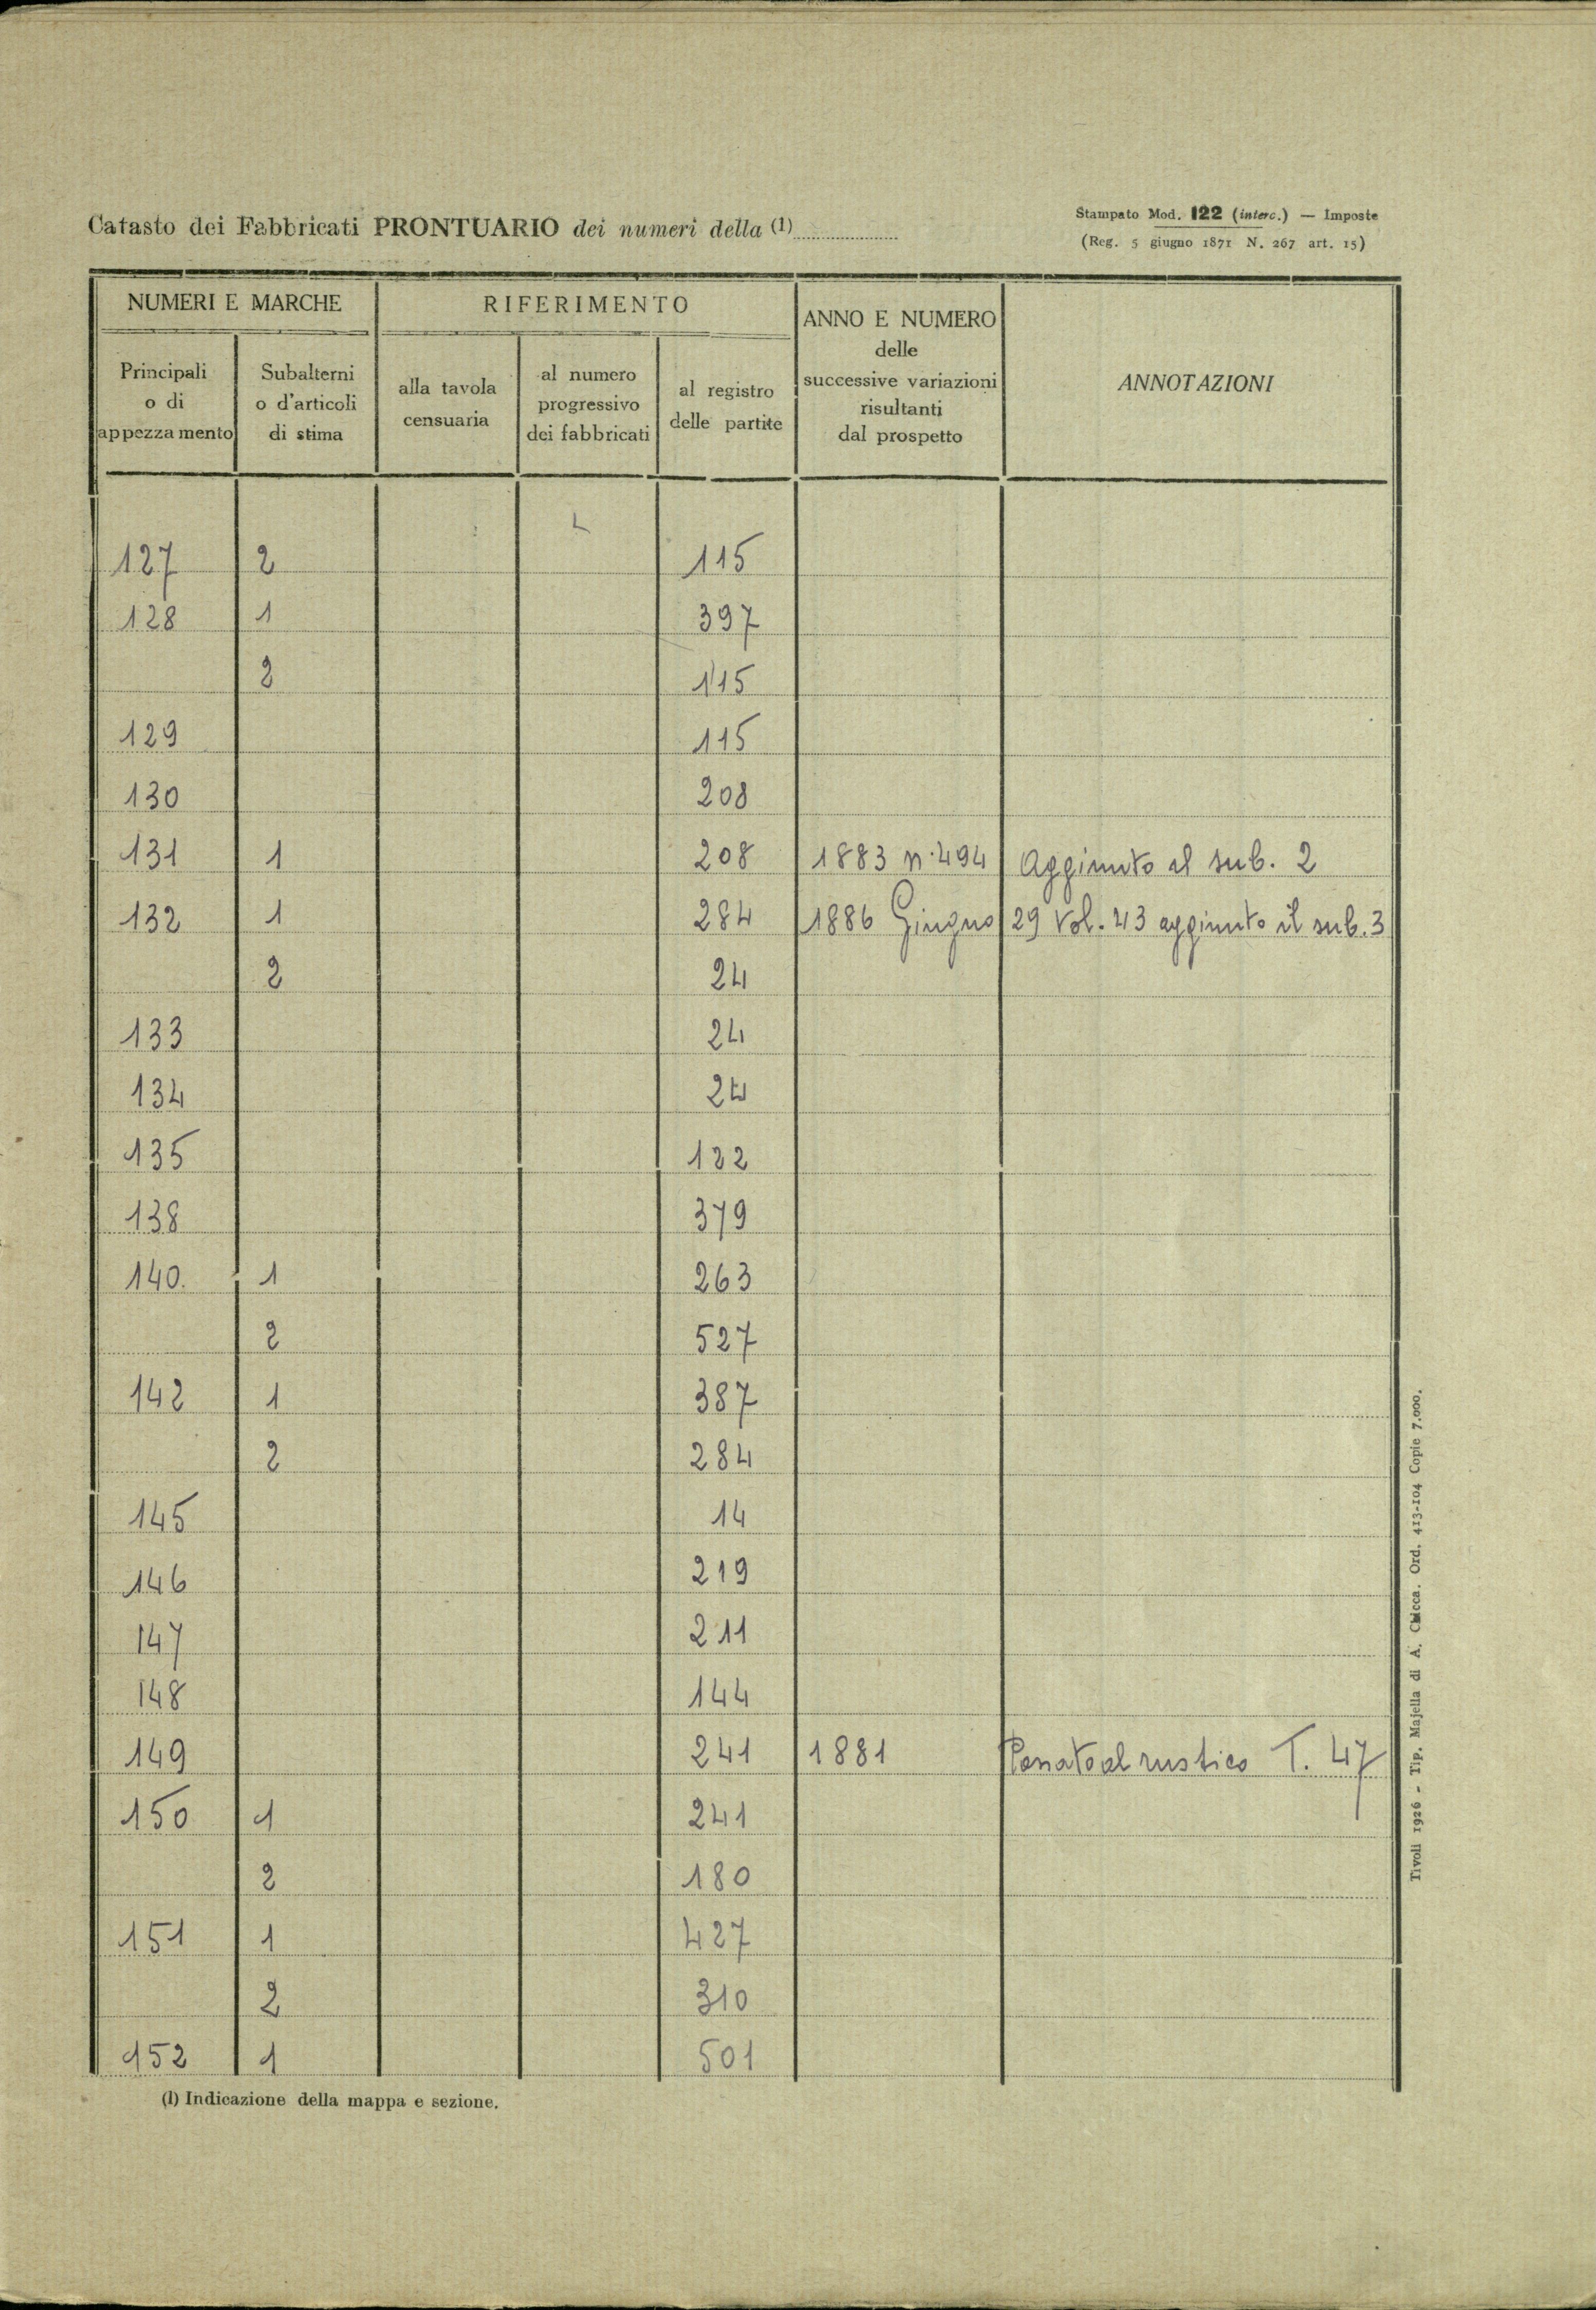 Catasto dei Fabbricati PRONTUARIO dei numeri della (1)
Stampato Mod. 122 (interc.) — Imposte
(Reg. 5 giugno 1871 N. 267 art. 15)
NUMERI E MARCHE
RIFERIMENTO
ANNO E NUMERO
delle
successive variazioni
risultanti
dal prospetto
ANNOTAZIONI
Principali
o di
appezzamento
Subalterni
o d'articoli
di stima
alla tavola
censuaria
al numero
progressivo
dei fabbricati
al registro
delle partite
127 2 115
128 1 397
2 115
129 115
130 208
131 1 208 1883 n. 494 Aggiunto al sub. 2
132 1 284 1886 Giugno 29 Vol. 43 aggiunto il sub. 3
2 24
133 24
134 24
135 122
138 379
140. 1 263
2 527
142 1 387
2 284
145 14
146 219
147 211
148 144
149 241 1881 Passato al rustico T. 47
150 1 241
2 180
151 1 427
2 310
152 1 501
(1) Indicazione della mappa e sezione.
Tivoli 1926 - Tip. Majella di A. Chicca. Ord. 413-104 Copie 7.000.